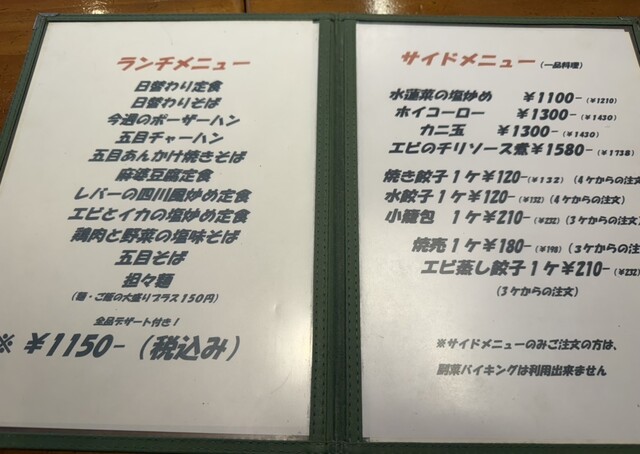 ランチメニュー
日替わり定食
日替わりそば
今週のポーザーハン
五目チャーハン
五目あんかけ焼きそば
麻婆豆腐定食
レバーの四川風炒め定食
エビとイカの塩炒め定食
鶏肉と野菜の塩味そば
五目そば
担々麺
(麺・ご飯の大盛りプラス150円)
全品デザート付き!
※ ¥1150- (税込み)
サイドメニュー (一品料理)
水蓮菜の塩炒め ¥1100- (¥1210)
ホイコーロー ¥1300- (¥1430)
カニ玉 ¥1300- (¥1430)
エビのチリソース煮 ¥1580- (¥1738)
焼き餃子 1ケ¥120- (¥132) (4ケからの注文)
水餃子 1ケ¥120- (¥132) (4ケからの注文)
小籠包 1ケ¥210- (¥232) (3ケからの注文)
焼売 1ケ¥180- (¥198) (3ケからの注文)
エビ蒸し餃子 1ケ¥210- (¥232)
(3ケからの注文)
※サイドメニューのみご注文の方は、
副菜バイキングは利用出来ません